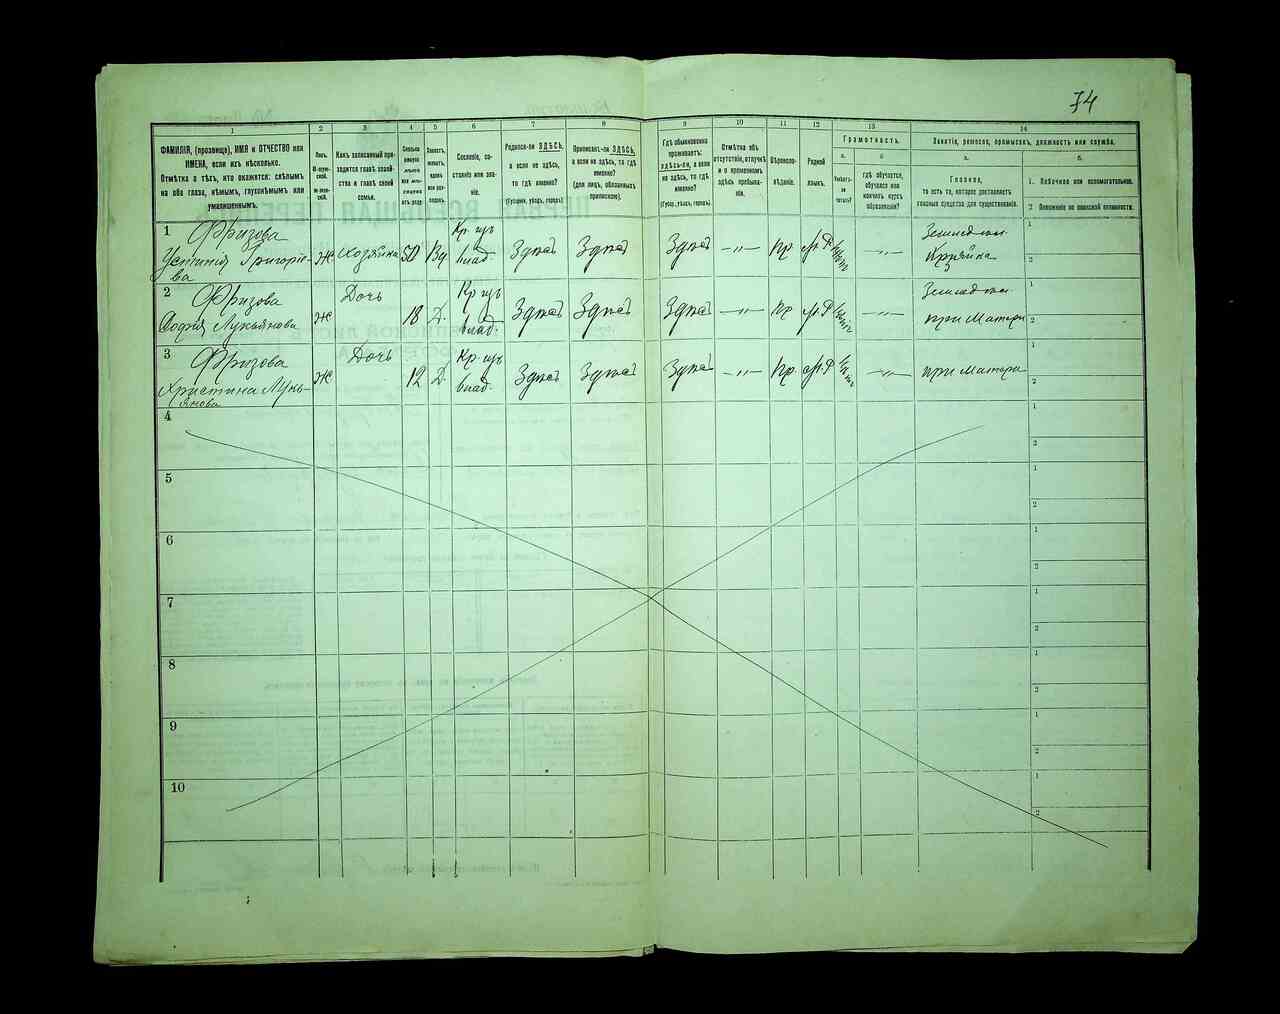 74
1 2 3 4 5 6 7 8 9 10 11 12 13 14
ФАМИЛІЯ, (прозвище), ИМЯ и ОТЧЕСТВО или
ИМЕНА, если ихъ нѣсколько.
Отмѣтка о тѣхъ, кто окажется: слѣпымъ
на оба глаза, нѣмымъ, глухонѣмымъ или
умалишеннымъ.
Полъ.
Какъ записанный при-
ходится главѣ хозяй-
ства и главѣ своей
семьи.
Сословіе, со-
стояніе или зва-
ніе.
Родился-ли ЗДѢСЬ,
а если не здѣсь,
то гдѣ именно?
(Губернія, уѣздъ, городъ).
Приписанъ-ли ЗДѢСЬ,
а если не здѣсь, то гдѣ
именно?
(для лицъ, обязанныхъ
припискою).
Гдѣ обыкновенно
проживаетъ:
здѣсь-ли, а если
не здѣсь, то гдѣ
именно?
(Губер., уѣздъ, городъ).
Отмѣтка объ
отсутствіи, отлучкѣ
и о временномъ
здѣсь пребыва-
ніи.
Вѣроиспо-
вѣданіе.
Родной
языкъ.
Грамотность.
а.
Умѣетъ-ли
читать?
б.
гдѣ обучается,
обучался или
кончилъ курсъ
образованія?
Занятіе, ремесло, промыселъ, должность или служба.
а.
Главное,
то есть то, которое доставляетъ
главныя средства для существованія.
б.
1. Побочное или вспомогательное.
2 Положеніе по воинской повинности.
1 Фризова
Устинія Григорье-
ва
Ж Хозяйка 50 Вд Кр. изъ
влад. Здѣсь Здѣсь Здѣсь —"— Пр М.Р —"—
Хозяйка
1
2
2 Фризова
Софія Лукьянова
Ж Дочь 18 Д. Кр изъ
влад. Здѣсь Здѣсь Здѣсь —"— Пр М.Р —"—
при Матери
1
2
3 Фризова
Христина Лукь-
янова
Ж Дочь 12 Д. Кр. изъ
влад. Здѣсь Здѣсь Здѣсь —"— Пр. М.Р —"— при Матери
1
2
4 1
2
5 1
2
6 1
2
7 1
2
8 1
2
9 1
2
10 1
2